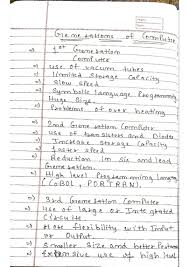 Generations of Computer
1st Generation
Computer
use of vacum tubes
limited storage capacity
slow speed
Symbolic Language Programming
Huge Size
Problems of over heating
2nd Generation Computer
use of translators and Diodes
Increase Storage capacity
faster speed
Reduction in size and
Generation
High level Programming
(COBOL, FORTRAN)
3rd Generation Computer
use of large or Integrated
Circuits
More flexibility with Input
or Output
Smaller Size and better
Extensive use of high level